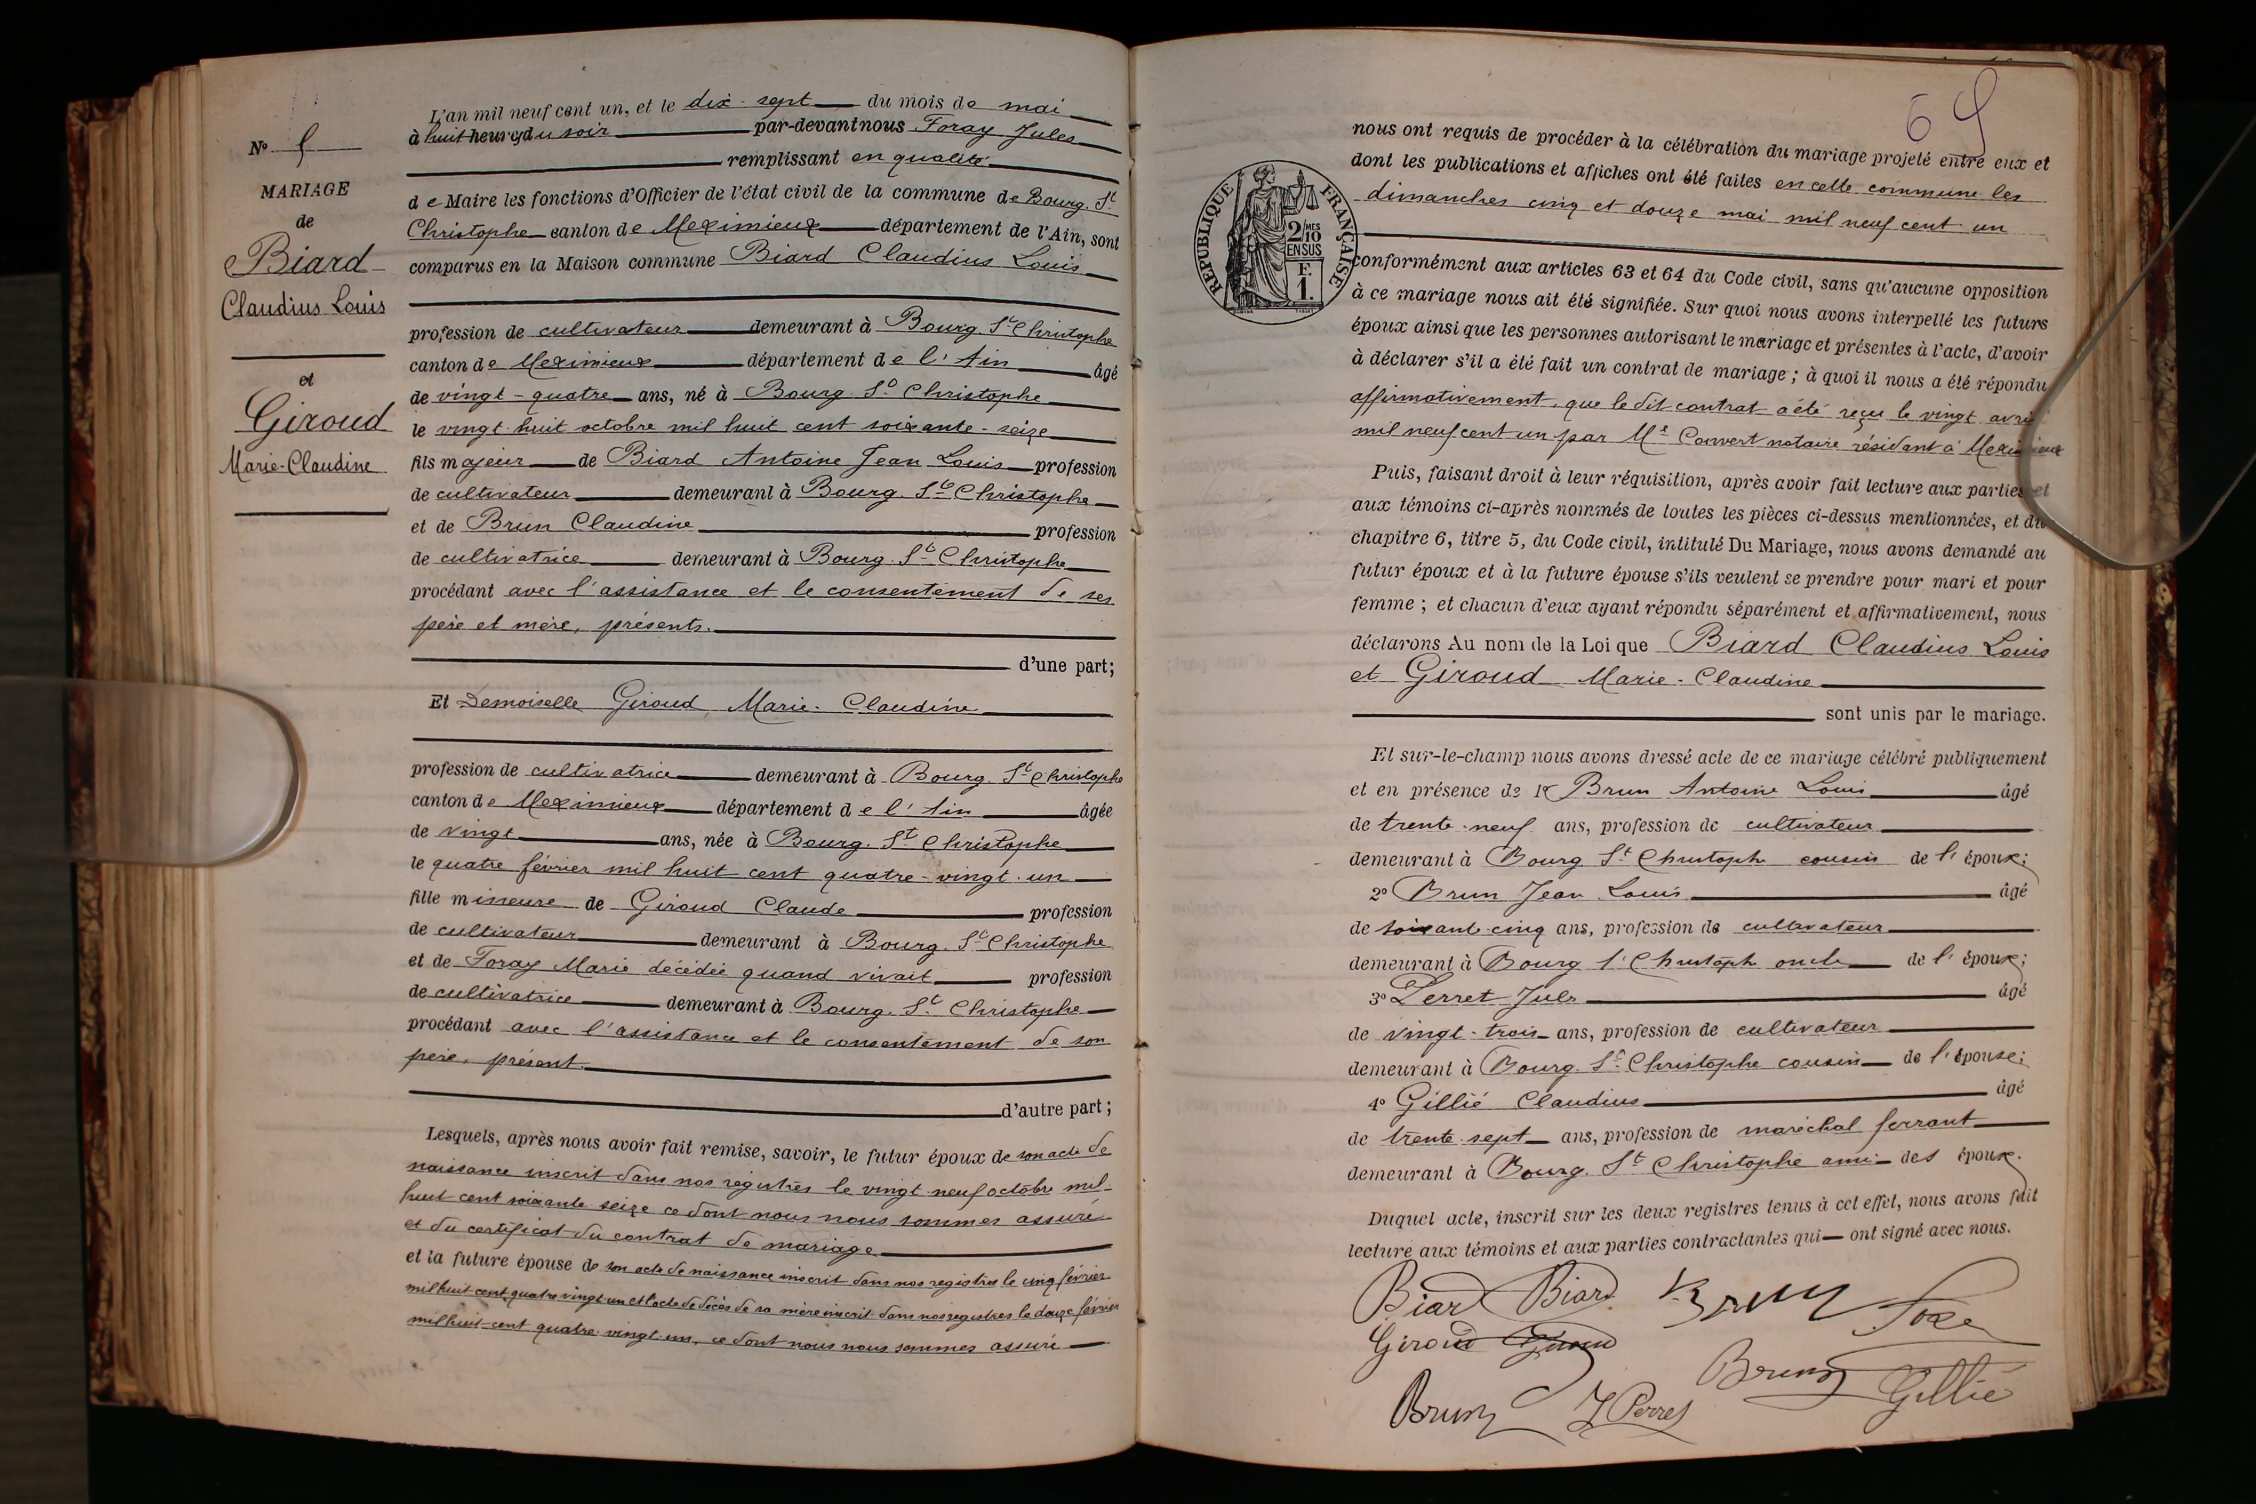 L'an mil neuf cent un, et le dix-sept du mois de mai
à huit heures du soir par-devant nous Foray Jules
remplissant en qualité
de Maire les fonctions d'Officier de l'état civil de la commune de Bourg. St
Christophe canton de Meximieux département de l'Ain, sont
comparus en la Maison commune Biard Claudius Louis
profession de cultivateur demeurant à Bourg. St Christophe
canton de Meximieux département de l'Ain âgé
de vingt-quatre ans, né à Bourg St Christophe
le vingt-huit octobre mil huit cent soixante-seize
fils majeur de Biard Antoine Jean Louis profession
de cultivateur demeurant à Bourg. St Christophe
et de Brun Claudine profession
de cultivatrice demeurant à Bourg. St Christophe
procédant avec l'assistance et le consentement de ses
père et mère, présents.
d'une part;
Et Demoiselle Giroud Marie-Claudine
profession de cultivatrice demeurant à Bourg. St Christophe
canton de Meximieux département de l'Ain âgée
de vingt ans, née à Bourg. St Christophe
le quatre février mil huit cent quatre-vingt-un
fille mineure de Giroud Claude profession
de cultivateur demeurant à Bourg. St Christophe
et de Foray Marie décédée quand vivait profession
de cultivatrice demeurant à Bourg. St Christophe
procédant avec l'assistance et le consentement de son
père, présent.
d'autre part;
Lesquels, après nous avoir fait remise, savoir, le futur époux de son acte de
naissance inscrit dans nos registres le vingt-neuf octobre mil-
huit cent soixante seize ce dont nous nous sommes assuré
et du certificat du contrat de mariage
et la future épouse de son acte de naissance inscrit dans nos registres le cinq février
mil huit cent quatre vingt-un et l'acte de décès de sa mère inscrit dans nos registres le douze février
mil huit-cent quatre-vingt-un, ce dont nous nous sommes assuré
No 9
MARIAGE
de
Biard
Claudius Louis
et
Giroud
Marie-Claudine
69
nous ont requis de procéder à la célébration du mariage projeté entre eux et
dont les publications et affiches ont été faites en cette commune les
dimanches cinq et douze mai mil neuf cent un
conformément aux articles 63 et 64 du Code civil, sans qu'aucune opposition
à ce mariage nous ait été signifiée. Sur quoi nous avons interpellé les futurs
époux ainsi que les personnes autorisant le mariage et présentes à l'acte, d'avoir
à déclarer s'il a été fait un contrat de mariage; à quoi il nous a été répondu
affirmativement, que le dit contrat a été reçu le vingt avril
mil neuf cent un par Me Convert notaire résidant à Meximieux
Puis, faisant droit à leur réquisition, après avoir fait lecture aux parties et
aux témoins ci-après nommés de toutes les pièces ci-dessus mentionnées, et du
chapitre 6, titre 5, du Code civil, intitulé Du Mariage, nous avons demandé au
futur époux et à la future épouse s'ils veulent se prendre pour mari et pour
femme; et chacun d'eux ayant répondu séparément et affirmativement, nous
déclarons Au nom de la Loi que Biard Claudius Louis
et Giroud Marie-Claudine
sont unis par le mariage.
Et sur-le-champ nous avons dressé acte de ce mariage célébré publiquement
et en présence de 1º Brun Antoine Louis âgé
de trente-neuf ans, profession de cultivateur
demeurant à Bourg St Christoph cousin de l'époux;
2º Brun Jean Louis âgé
de soixante-cinq ans, profession de cultivateur
demeurant à Bourg St Christoph oncle de l'époux;
3º Perret Jules âgé
de vingt-trois ans, profession de cultivateur
demeurant à Bourg. St Christophe cousin de l'épouse;
4º Gillié Claudius âgé
de trente-sept ans, profession de maréchal ferrant
demeurant à Bourg. St Christophe ami des époux.
Duquel acte, inscrit sur les deux registres tenus à cet effet, nous avons fait
lecture aux témoins et aux parties contractantes qui ont signé avec nous.
Biard Biard Brun
Giroud Giroud
Brun J Perret Brun Gillié
RÉPUBLIQUE FRANÇAISE
2/10 MES
EN SUS
F.
1.